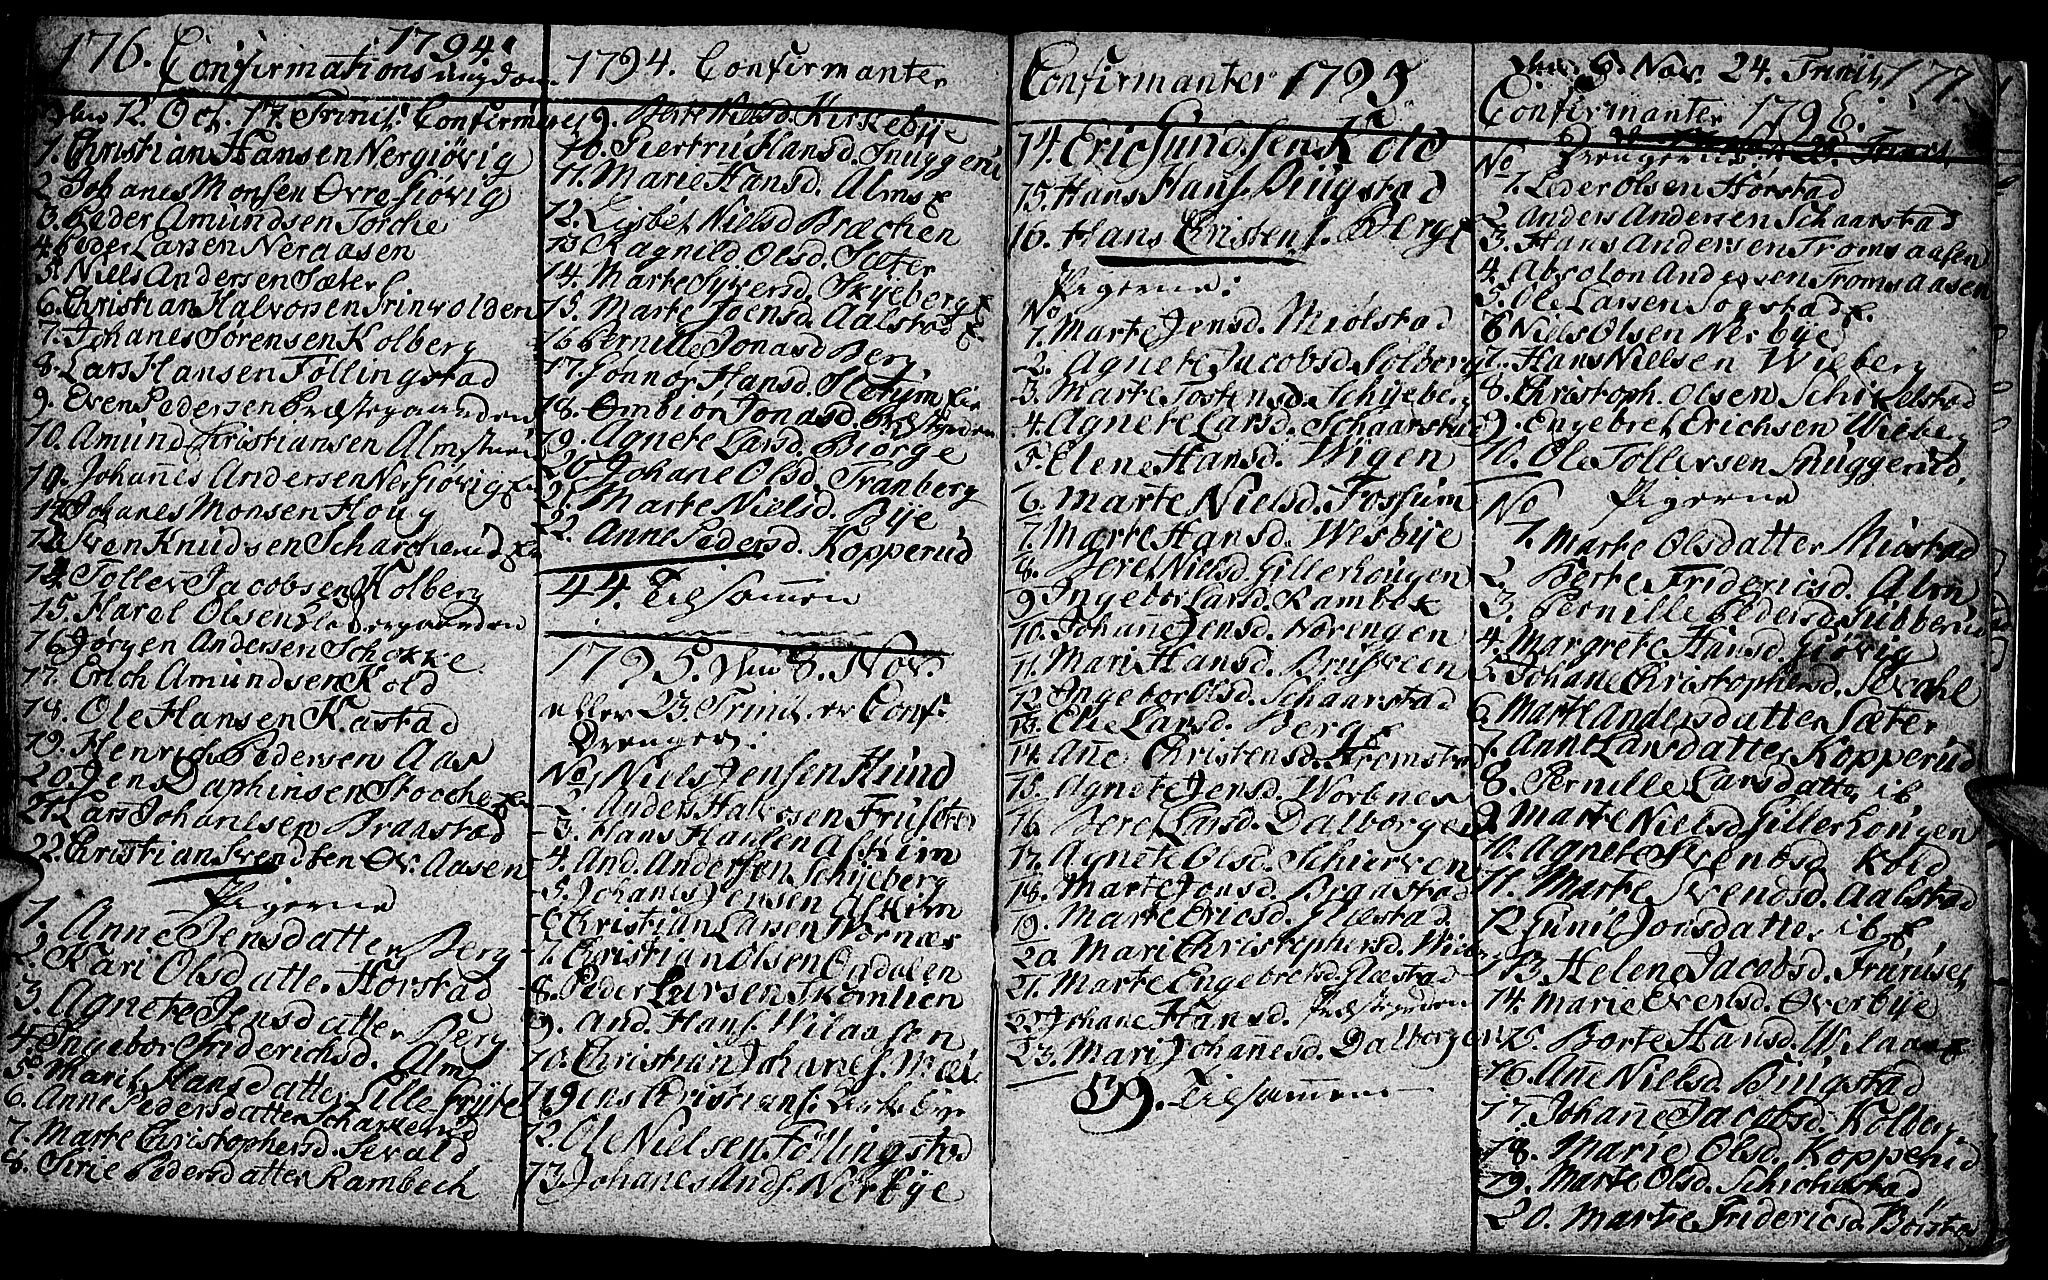 176. 1794.
Confirmations ungdom.
den 12. Oct. 17. Trinit. Confirmeres
1. Christian Hansen Nergiøvig
2. Johanes Monsen Øvre Giøvig
3. Peder Amundsen Torche
4. Peder Larsen Neraasen
5. Niels Andersen Sæter
6. Christian Halvorsen Trinvolden
7. Johanes Sørensen Kolberg
8. Lars Hansen Føllingstad
9. Even Pedersen Præstegaarden
10. Amund Christiansen Alm
10. Johanes Andersen Nergiøvig
Johanes Monsen Houg
Sven Knudsen Scharcherud
Toller Jacobsen Kolberg
15. Harel Olsen
16. Jørgen Andersen Schøkke
17. Erich Amundsen Kold
18. Ole Hansen Kastad
19. Henrich Pedersen Aas
20. Jens Daphinsen Stocche
21. Lars Johanesen Braastad
22. Christian Svendsen Øv. Aasen
Pigerne
1. Anne Jensdatter Berg
2. Kari Olsdatter Horstad
3. Agnete Jensdatter Berg
4. Ingebor Friderichsd. Alm
5. Marit Hansdatter Lille
6. Anne Pedersdatter Scharkerud
7. Marte Christophersd. Sevald
8. Sirie Pedersdatter Rambech
1794. Confirmanter
9. Berte Nielsd. Kirkebye
10. Giertru Hansd. Snuggerud
11. Marie Hansd. Alms
12. Lisbet Nielsd. Bræchen
13. Ragnild Olsd. Sæter
14. Marte Syversd. Skyeberg
15. Marte Joensd. Aalstad
16. Pernille Jonasd. Berg
17. Gonnor Hansd.
18. Ombiør Jonasd.
19. Agnete Larsd. Biørge
20. Johane Olsd. Tranberg
21. Marte Nielsd. Bye
22. Anne Pedersd. Kopperud
44. Tilsamen
1795. den 8. Nov.
eller 23. Trinit. er Conf:
Drenger:
No 1. Niels Jensen Hund
2. Anders Halvorsen
3. Hans Hansen Askim
4. And. Andersen Schyeberg
5. Johanes Jensen Askim
6. Christian Larsen Wornæs
7. Christian Olsen Ondalen
8. Peder Larsen Skomlien
9. And. Hans. Wilaasen
10. Christian Johanes.
11. Jens Christians. Kirkebye
12. Ole Nielsen Føllingstad
13. Johanes Ands. Nerbye
Confirmanter 1795
14. Eric Gunds. Kold
15. Hans Hans. Bingstad
16. Hans Cristens. Berg
Pigerne:
No
1. Marte Jensd. Miølstad
2. Agnete Jacobsd. Solberg
3. Marte Tostensd. Schyeberg
4. Agnete Larsd. Schaarstad
5. Elene Hansd. Wigen
6. Marte Nielsd. Fossum
7. Marte Hansd. Wesbye
8. Beret Nielsd. Gillerhougen
9. Ingebor Larsd. Rambek
10. Johane Jensd. Nøringen
11. Mari Hansd. Brusveen
12. Ingebor Olsd. Schaarstad
13. Elie Larsd. Berg
14. Ane Christensd. Bremstad
15. Agnete Jensd. Wornes
16. Beret Larsd. Dalborgen
17. Agnete Olsd. Schierven
18. Marte Jonsd. Braastad
19. Marte Ericsd. Glæstad
20. Mari Christophersd. Wiberg
21. Marte Engebretsd. Glæstad
22. Johane Hansd.
23. Mari Johanesd. Dalborgen
39. Tilsamen
den 6. Nov. 24. Trinit. 177.
Confirmanter 1796.
No Drengerne
1. Peder Olsen Hørstad
2. Anders Andersen Schaarstad
3. Hans Andersen Tromsaasen
4. Absolon Andersen Tromsaasen
5. Ole Larsen Sogstad
6. Niels Olsen Nerbye
7. Hans Nielsen Wieberg
8. Christoph. Olsen Schikelstad
9. Engebret Erichsen Wieberg
10. Ole Tollersen Snuggerud,
No Pigerne
1. Marte Olsdatter Miøstad
2. Berte Fridericsd. Alm
3. Pernille Pedersd. Gubberud
4. Margrete Hansd. Giøvig
5. Johane Christophersd. Sevahl
6. Marte Andersdatter Sæter
7. Anne Larsdatter Kopperud
8. Pernille Larsdatter ib
9. Marte Nielsd. Gillerhougen
10. Agnete Svendsd. Kold
11. Marte Svendsd. Aalstad
12. Gunil Jonsdatter ib
13. Helene Jacobsd.
14. Marie Evensd. Øverbye
15. Borte Hansd. Wilaas
16. Ane Nielsd. Bingstad
17. Johane Jacobsd. Kolberg
18. Marie Olsd. Kopperud
19. Marte Olsd. Schichelstad
20. Marte Fridericsd.